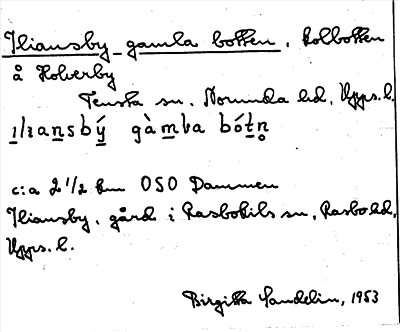 Iliansby gamla botten, kolbotten
å Holverby
Tensta sn, Norunda hd, Upps. l.
gàmla bót
c:a 2 1/2 km OSO Dammen
Iliansby, gård i Rasbokils sn, Rasbo hd,
Upps. l.
Birgitta Sandelin, 1953